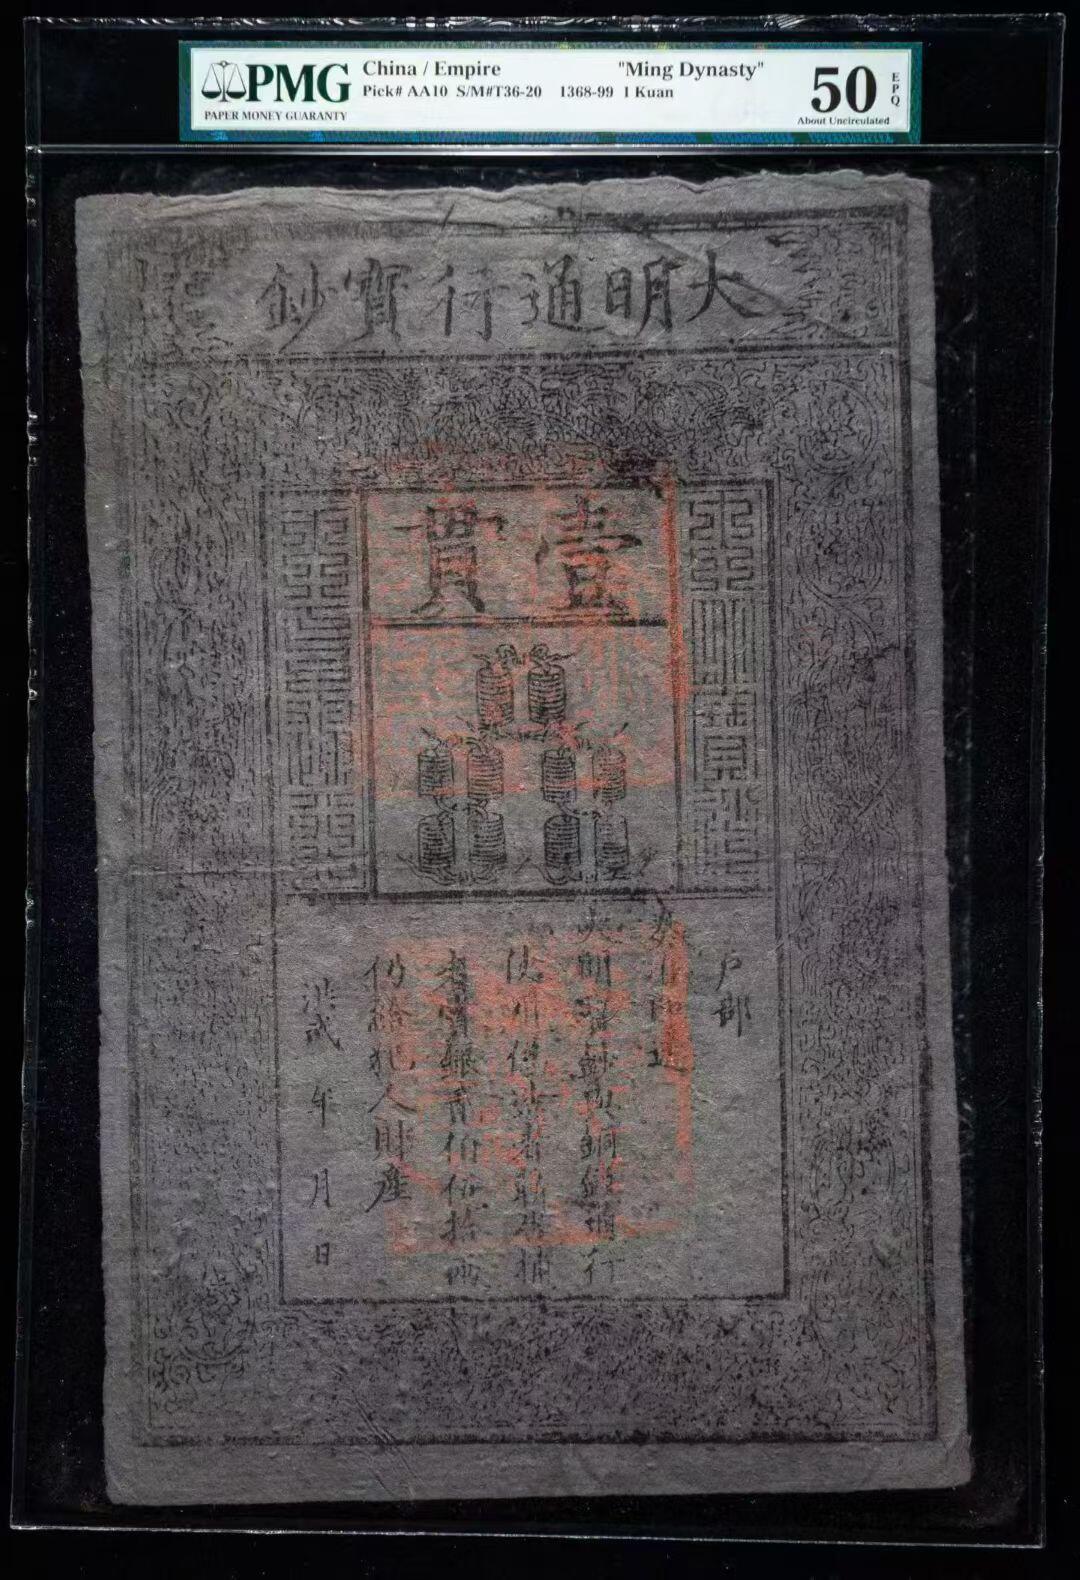 PMG
PAPER MONEY GUARANTY
China / Empire "Ming Dynasty"
Pick# AA10 S/M#T36-20 1368-99 1 Kuan
50 EPQ
About Uncirculated
大明通行寶鈔
壹貫
户部
奏准印造
大明寶鈔與銅錢通行
使用偽造者斬告捕
者賞銀貳佰伍拾兩
仍給犯人財產
洪武 年 月 日